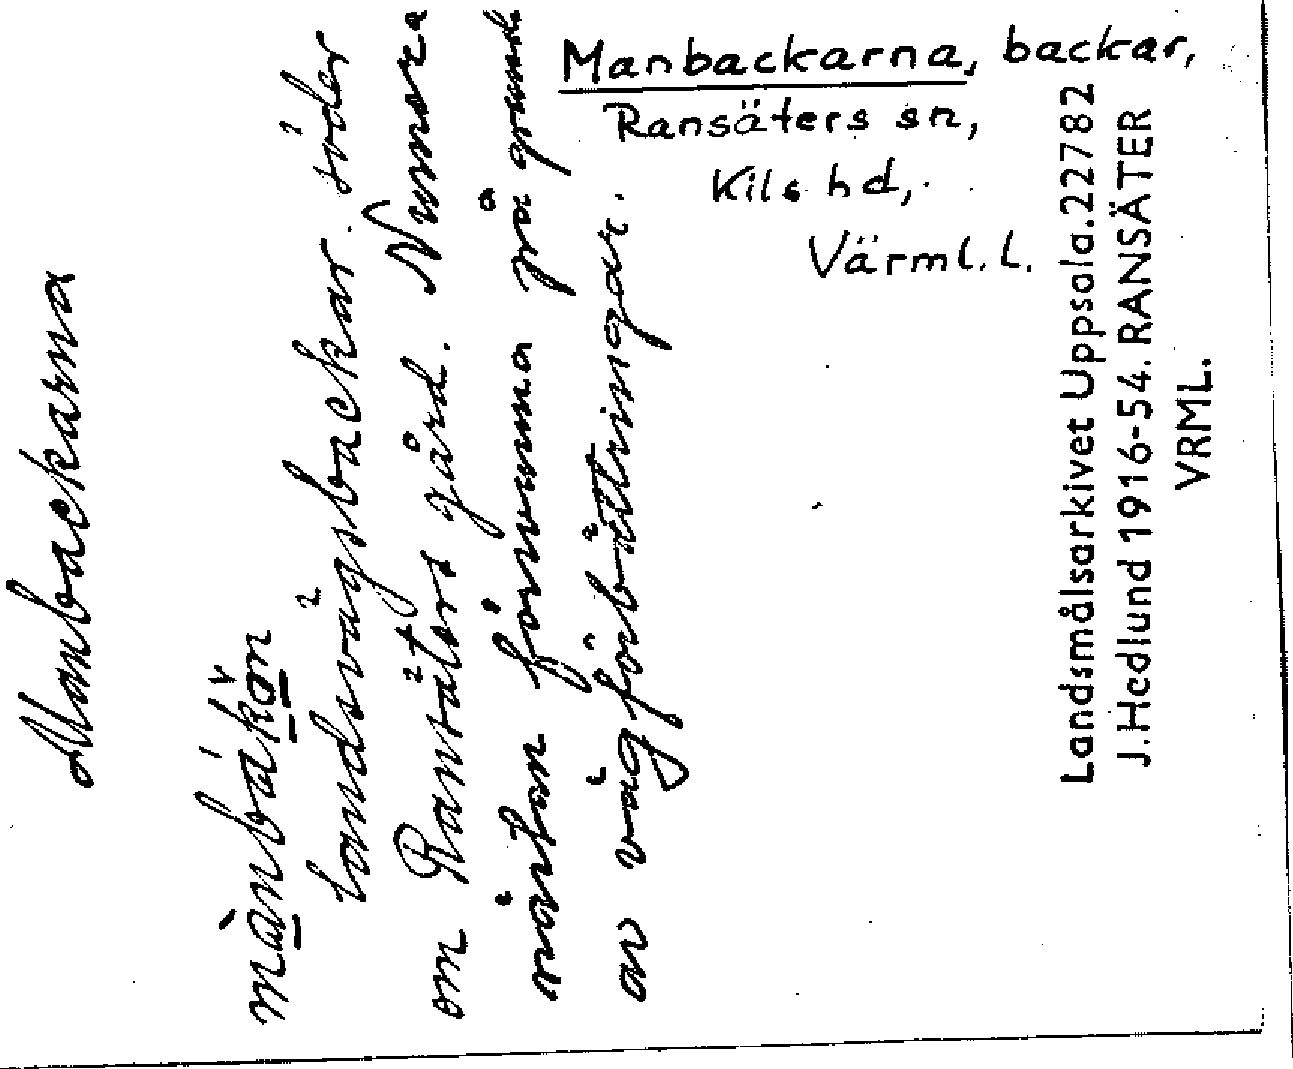 Manbackarna, backar,
Ransäters sn,
Kils hd,
Värml. L.
Manbackarna
landsvägsbackar söder
om Ransäters gård. Numera
nästan försvunna på grund
av vägförbättringar.
Landsmålsarkivet Uppsala. 22782
J. Hedlund 1916-54. RANSÄTER
VRML.